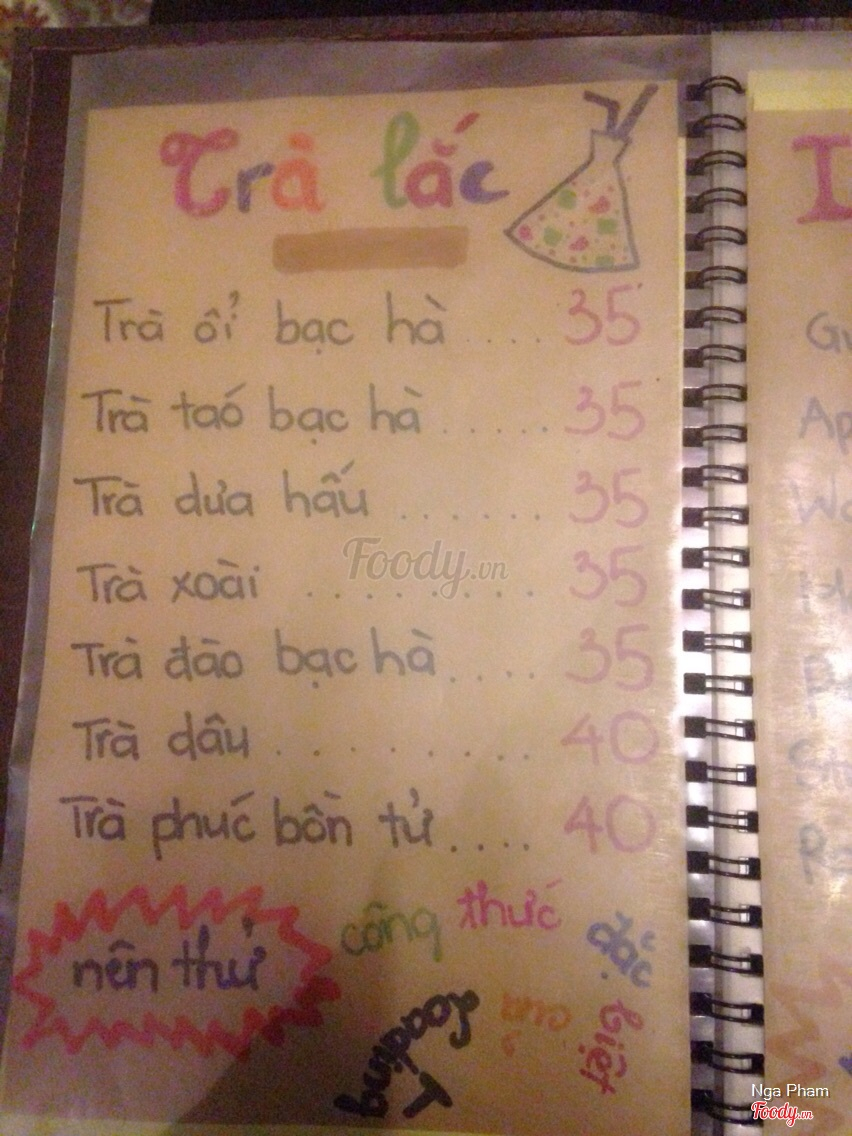 Trà lắc
Trà ổi bạc hà .... 35
Trà taó bạc hà ...... 35
Trà dưa hấu ...... 35
Trà xoài ........ 35
Trà đào bạc hà .... 35
Trà dâu ......... 40
Trà phúc bồn tử .... 40
nên thử
công thức đặc biệt của Loading
Foody.vn
Nga Pham
Foody.vn